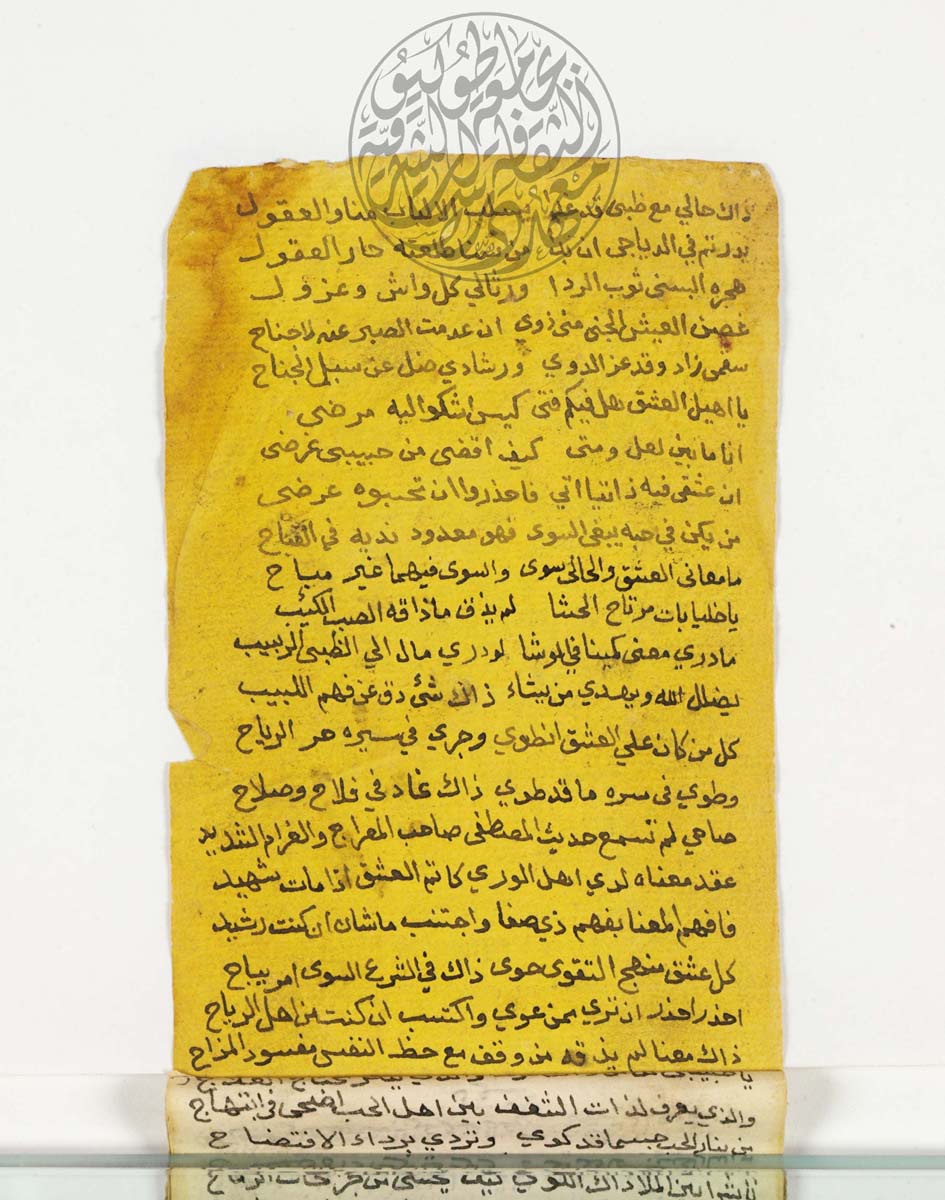 جامعة طوكيو
معهد الثقافة الشرقية
ذاك حالي مع ظبي قد علا يسلب الالباب منا والعقول
بدر تم في الدياجي ان بدا من سنا طلعته حار العقول
هجره البسني ثوب الردا ورثالي كل واش وعزول
غصن العيش الجني مني ذوي ان عدمت الصبر عنه لا جناح
سقمي زاد وقد عز الدوي ورشادي ضل عن سبل الجناح
يا اهيل العشق هل فيكم فتى كيس اشكو اليه مرضي
انا ما بين لعل ومتى كيف اقضي من حبيبي غرضي
ان عشقي فيه ذاتيا اتي فاحذروا ان تحسبوه عرضي
من يكن في حبه يبغي السوى فهو معدود لديه في القباح
ما معاني العشق والحالي سوى والسوى فيهما غير مباح
يا خليا بات مرتاح الحشا لم يذق ما ذاقه الصب الكئيب
ما دري معنى كمينا في الوشا لو دري مال الي الظبي الربيب
يضلل الله ويهدي من يشاء ذاك شئ دق عن فهم اللبيب
كل من كان علي العشق انطوي وجري في سيره مر الرياح
وطوي في سره ما قد طوي ذاك غاد في فلاح وصلاح
صاحي لم تسمع حديث المصطفى صاحب المعراج والغرام الشديد
عقد معناه لدي اهل الوري كاتم العشق اذا مات شهيد
فافهم المعنا بفهم ذي صفا واجتنب ما شان ان كنت رشيد
كل عشق منهج التقوى حوى ذاك في الشرع السوى امر يباح
احذر احذر ان تري ممن غوي واكتسب ان كنت من اهل الرباح
ذاك معنا لم يذقه من وقف مع حظ النفس مفسود المزاج
والذي يعرف لذات الشغف بين اهل الحب اضحى في ابتهاج
من بنار الحب جسما قد كوي وتردي برداء الافتضاح